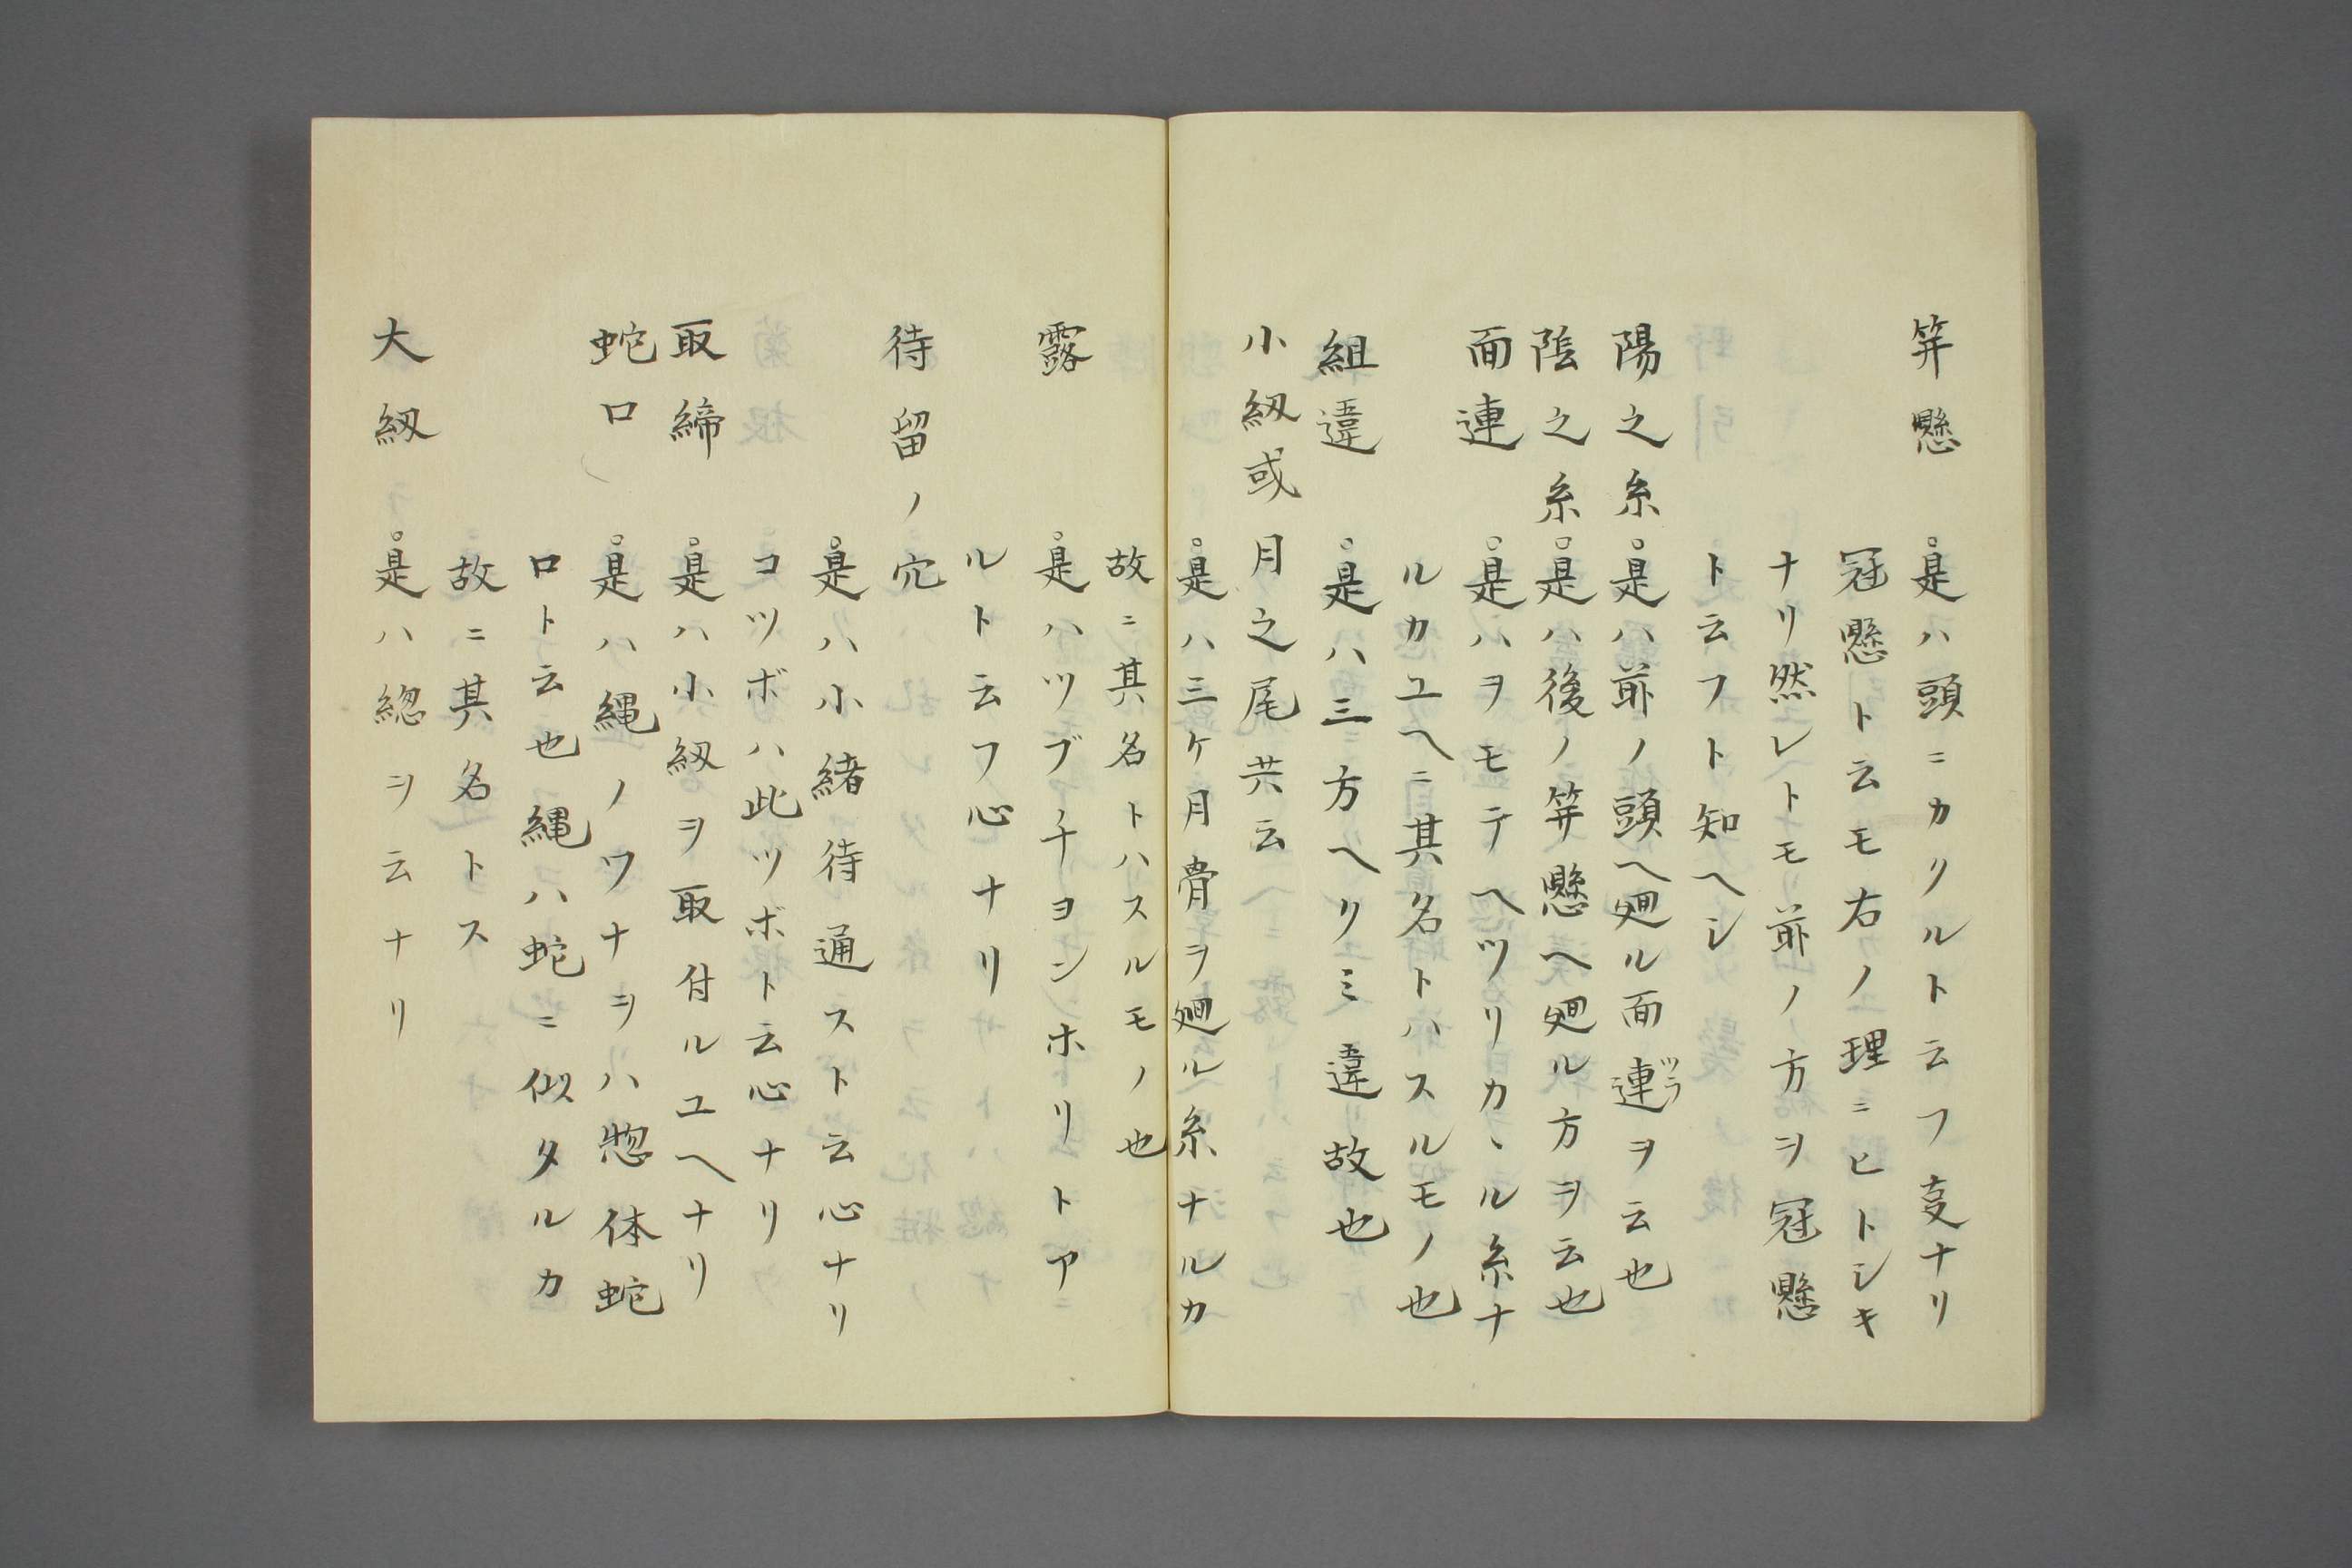 笄懸　°是ハ頭ニカヽルト云フ㕝ナリ
冠懸ト云モ右ノ理ニヒトシキ
ナリ然レトモ前ノ方ヲ冠懸
ト云フト知ヘシ
陽之糸°是ハ前ノ頭ヘ廻ル面連ツラヲ云也
陰之糸°是ハ後ノ笄懸ヘ廻ル方ヲ云也
面連　°是ハヲモテヘツリカヽル糸ナ
ルカユヘニ其名トハスルモノ也
組違　°是ハ三方ヘクミ違故也
小紐或月之尾共云
°是ハ三ケ月骨ヲ廻ル糸ナルカ
故ニ其名トハスルモノ也
露　°是ハツブチヨンホリトアニ
ルト云フ心ナリ
待留ノ穴
°是ハ小緒待通スト云心ナリ
コツボハ此ツボト云心ナリ
取締　°是ハ小紐ヲ取付ルユヘナリ
蛇口　°是ハ縄ノワナヲハ惣体蛇
口ト云也縄ハ蛇ニ似タルカ
故ニ其名トス
大紐　°是ハ総ヲ云ナリ